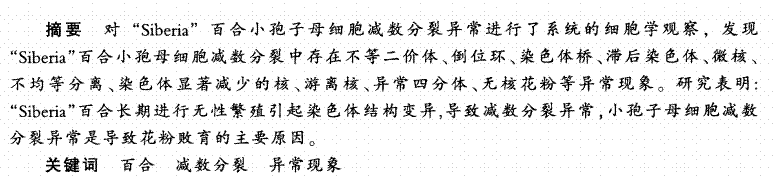 摘要 对“Siberia”百合小孢子母细胞减数分裂异常进行了系统的细胞学观察，发现
“Siberia”百合小孢母细胞减数分裂中存在不等二价体、倒位环、染色体桥、滞后染色体、微核、
不均等分离、染色体显著减少的核、游离核、异常四分体、无核花粉等异常现象。研究表明：
“Siberia”百合长期进行无性繁殖引起染色体结构变异,导致减数分裂异常,小孢子母细胞减数
分裂异常是导致花粉败育的主要原因。
关键词 百合 减数分裂 异常现象